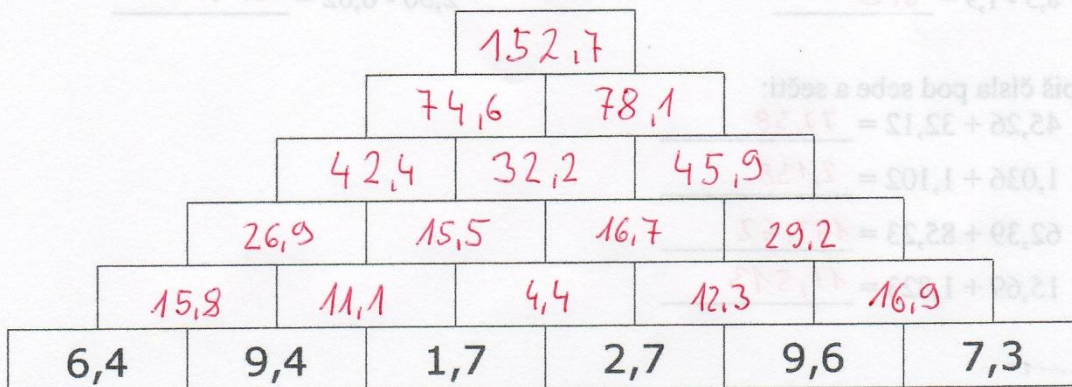 152,7
74,6 78,1
42,4 32,2 45,9
26,9 15,5 16,7 29,2
15,8 11,1 4,4 12,3 16,9
6,4 9,4 1,7 2,7 9,6 7,3